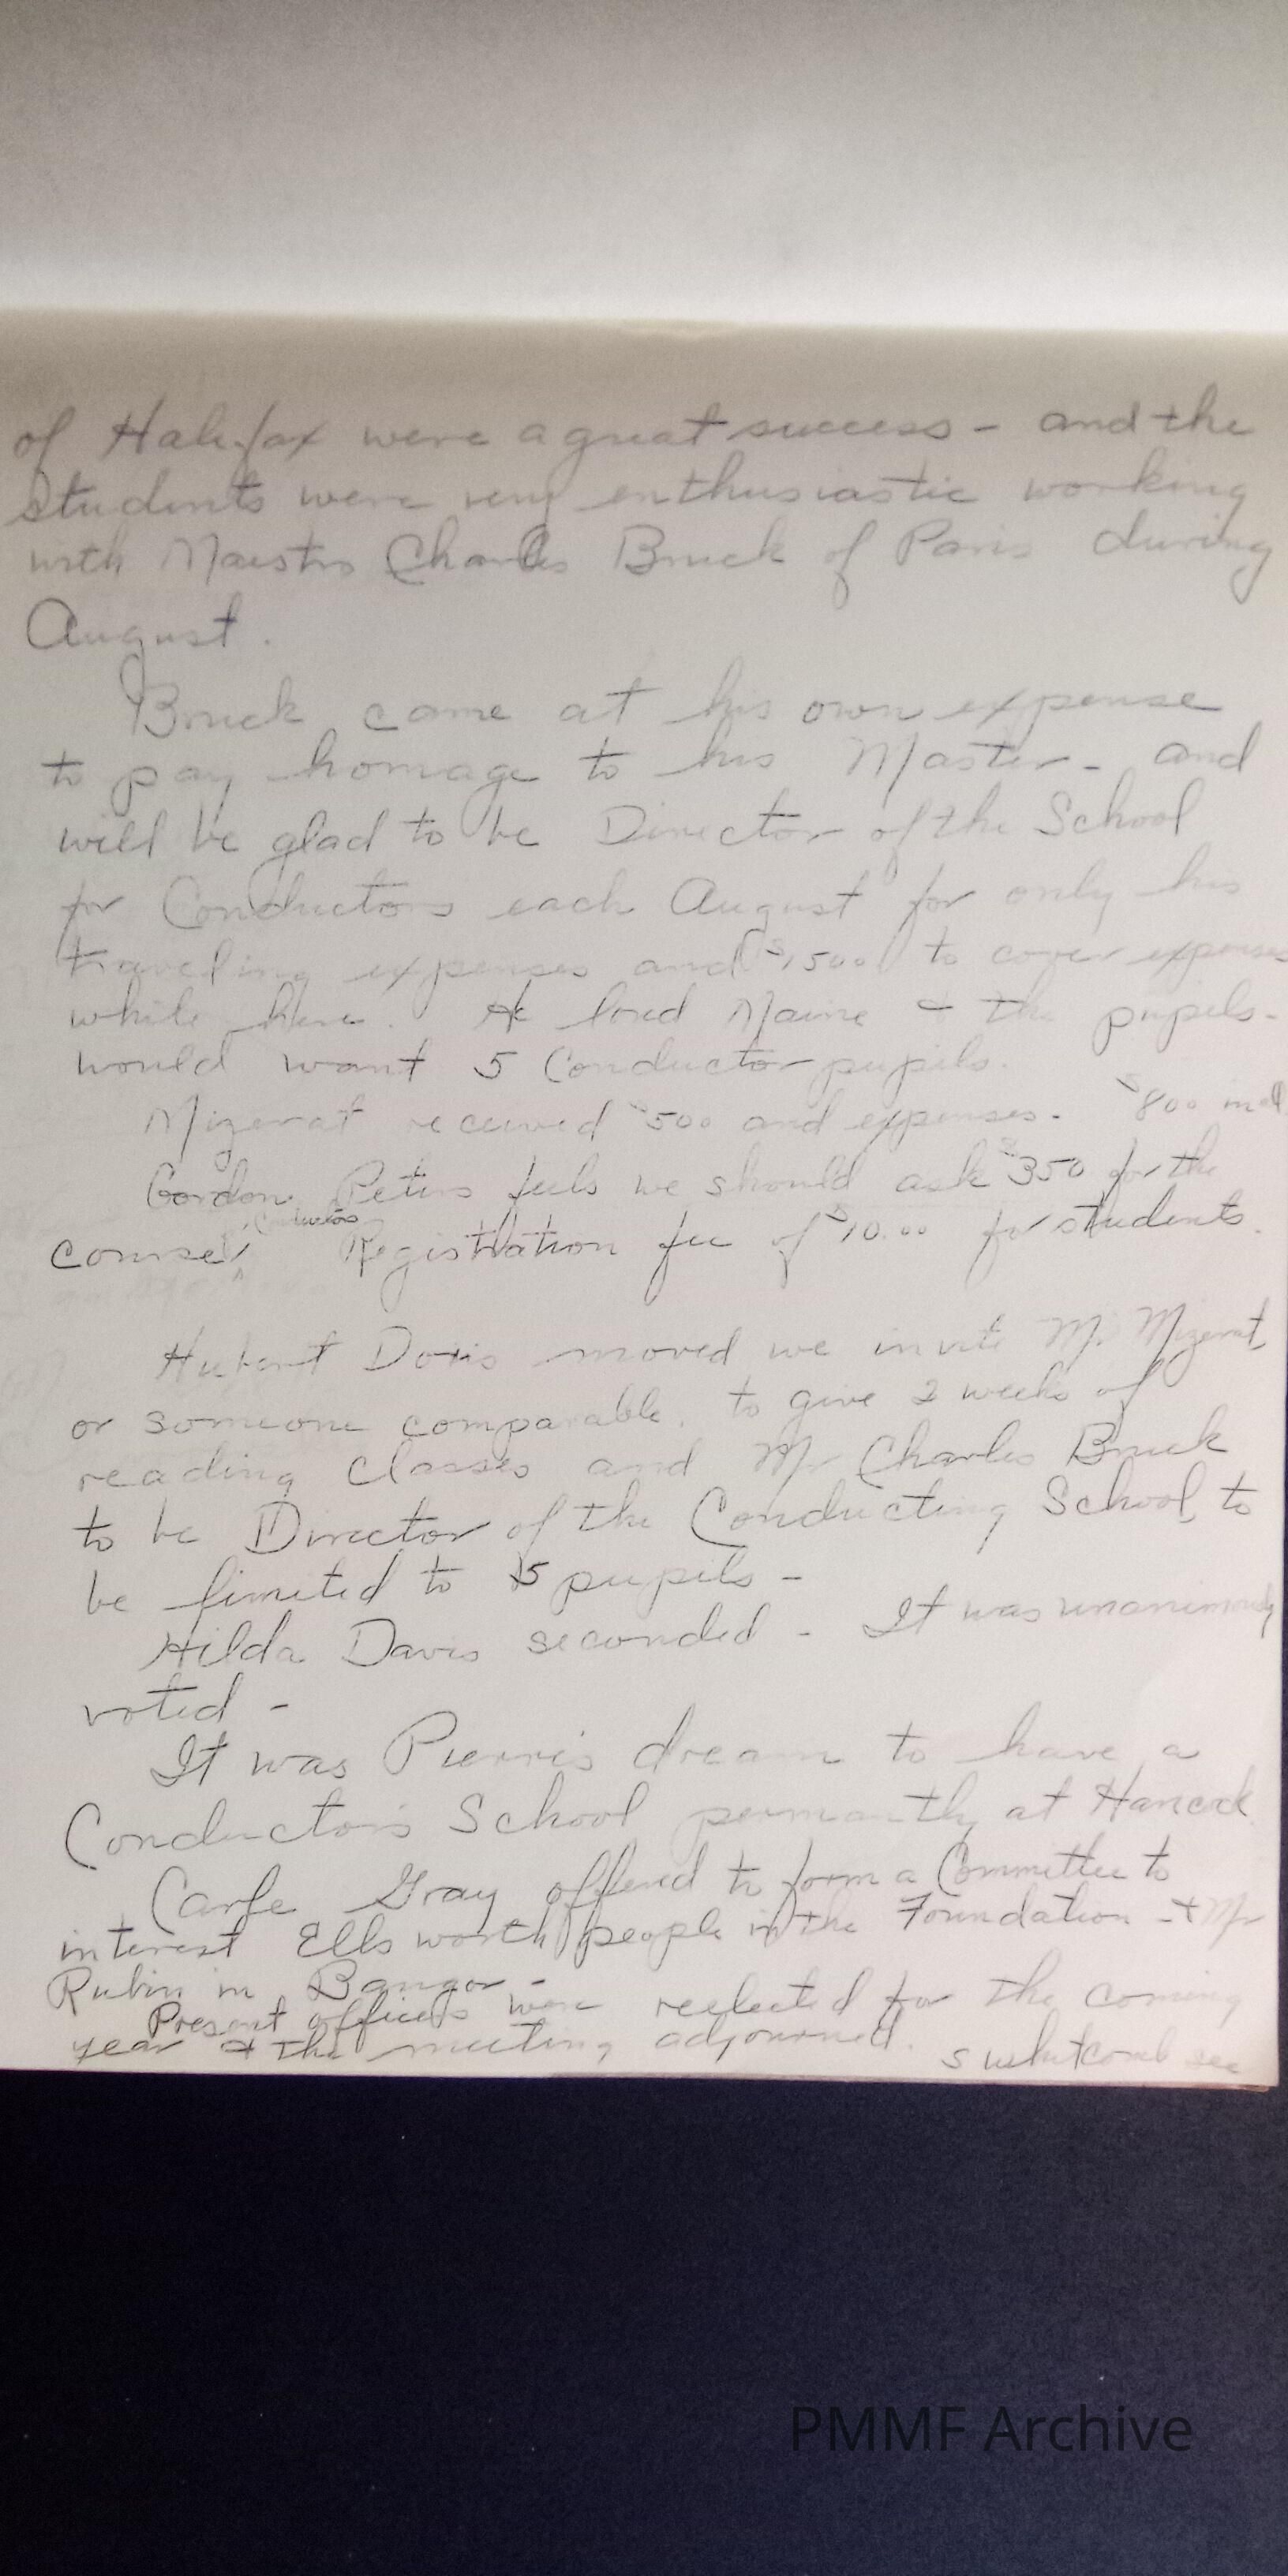 of Halifax were a great success - and the
students were very enthusiastic working
with Maestro Charles Bruck of Paris during
August.
Bruck came at his own expense
to pay homage to his Master - and
will be glad to be Director of the School
for Conductors each August for only his
traveling expenses and $1500 to cover expenses
while here. He loved Maine & the pupils -
would want 5 Conductor pupils.
Mizerat received $500 and expenses - $800 in all
Gordon Peters feels we should ask $350 for the
Conductors
course, Registration fee of $10.00 for students.
Hubert Doris moved we invite Mr. Mizerat,
or someone comparable, to give 2 weeks of
reading classes and Mr Charles Bruck
to be Director of the Conducting School, to
be limited to 5 pupils -
Hilda Davis seconded - It was unanimously
voted -
It was Pierre's dream to have a
Conductor's School permantly at Hancock
Gray offered to form a Committee to
interest Ellsworth people in the Foundation - & Mr
Rubin in Bangor -
Present officers were reelected for the coming
year & the meeting adjourned. S Whitcomb sec
PMMF Archive